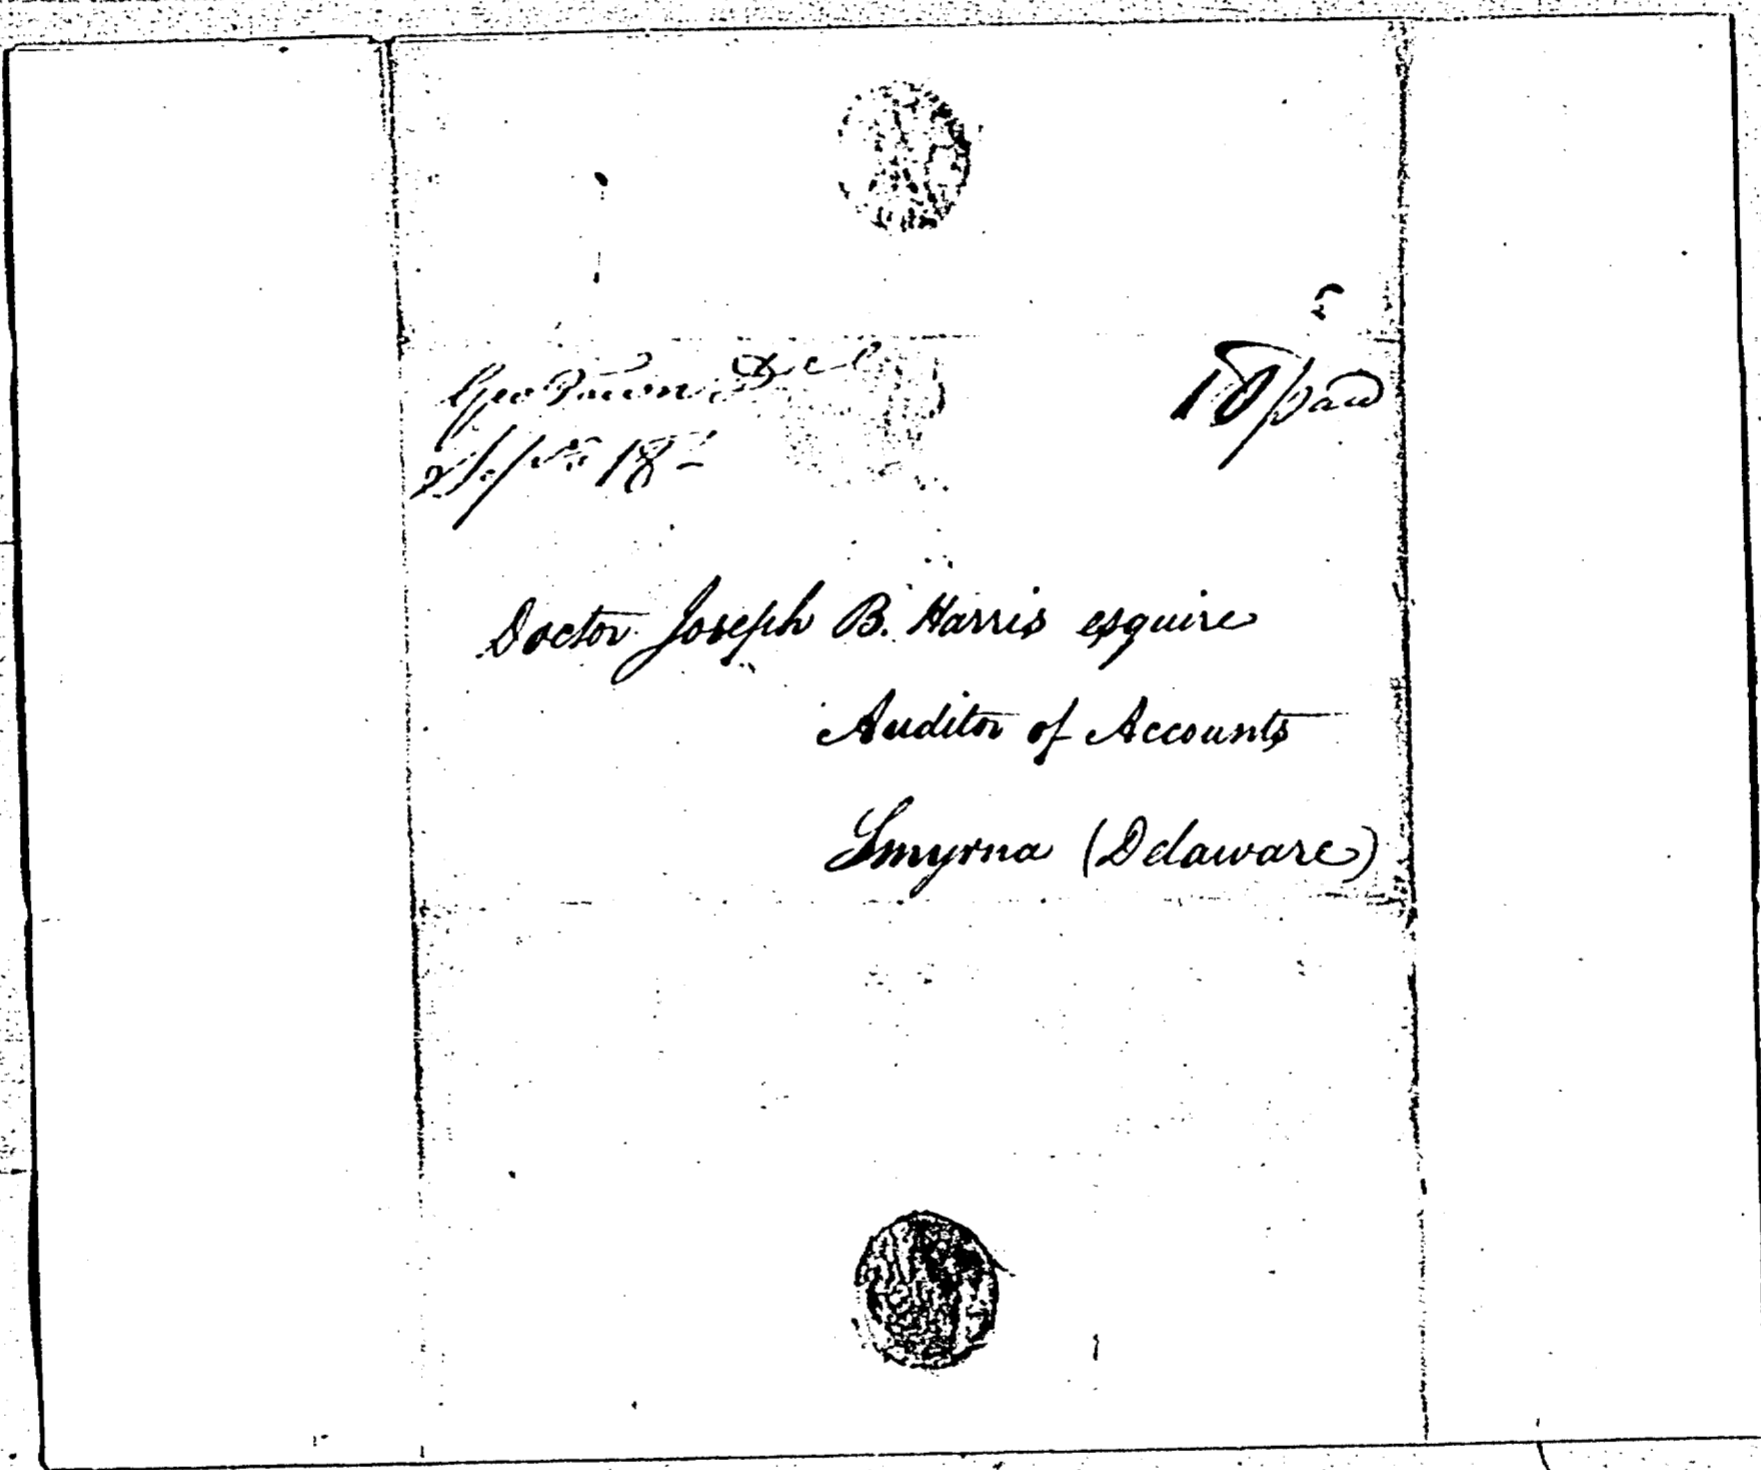 GeoTown Del
10 paid
Sept 18
Doctor Joseph B. Harris esquire
Auditor of Accounts
Smyrna (Delaware)